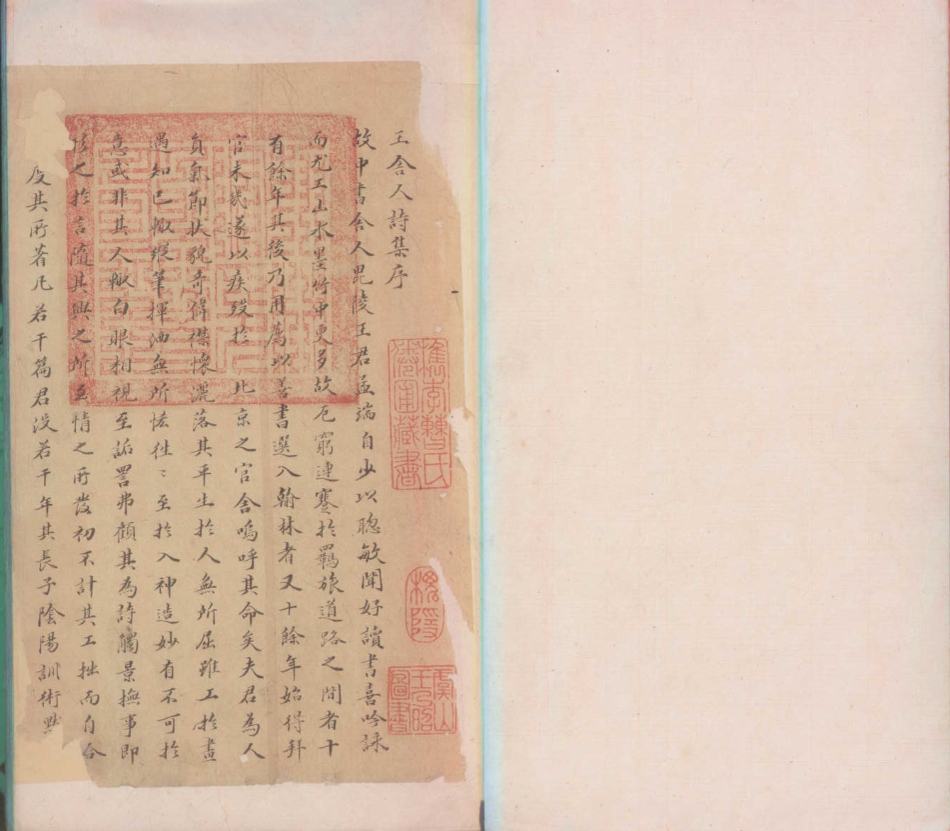 王舍人詩集序
故中書舍人毘陵王君孟端自少以聰敏聞好讀書喜吟詠
而尤工山水墨竹中更多故厄窮連蹇於羈旅道路之間者十
有餘年其後乃用薦以善書選入翰林者又十餘年始得拜
官未幾遂以疾歿於北京之官舍嗚呼其命矣夫君為人
負氣節狀貌奇偉襟懷灑落其平生於人無所屈雖工於畫
遇知己輒縱筆揮洒無所恡徃〻至於入神造妙有不可於
意或非其人輒白眼相視至詬詈弗顧其為詩觸景撫事即
之於言隨其興之所至情之所發初不計其工拙而自合
及其所著凡若干篇君沒若干年其長子陰陽訓術
檇李曹氏
藏書
槐隱
虞山
圖書